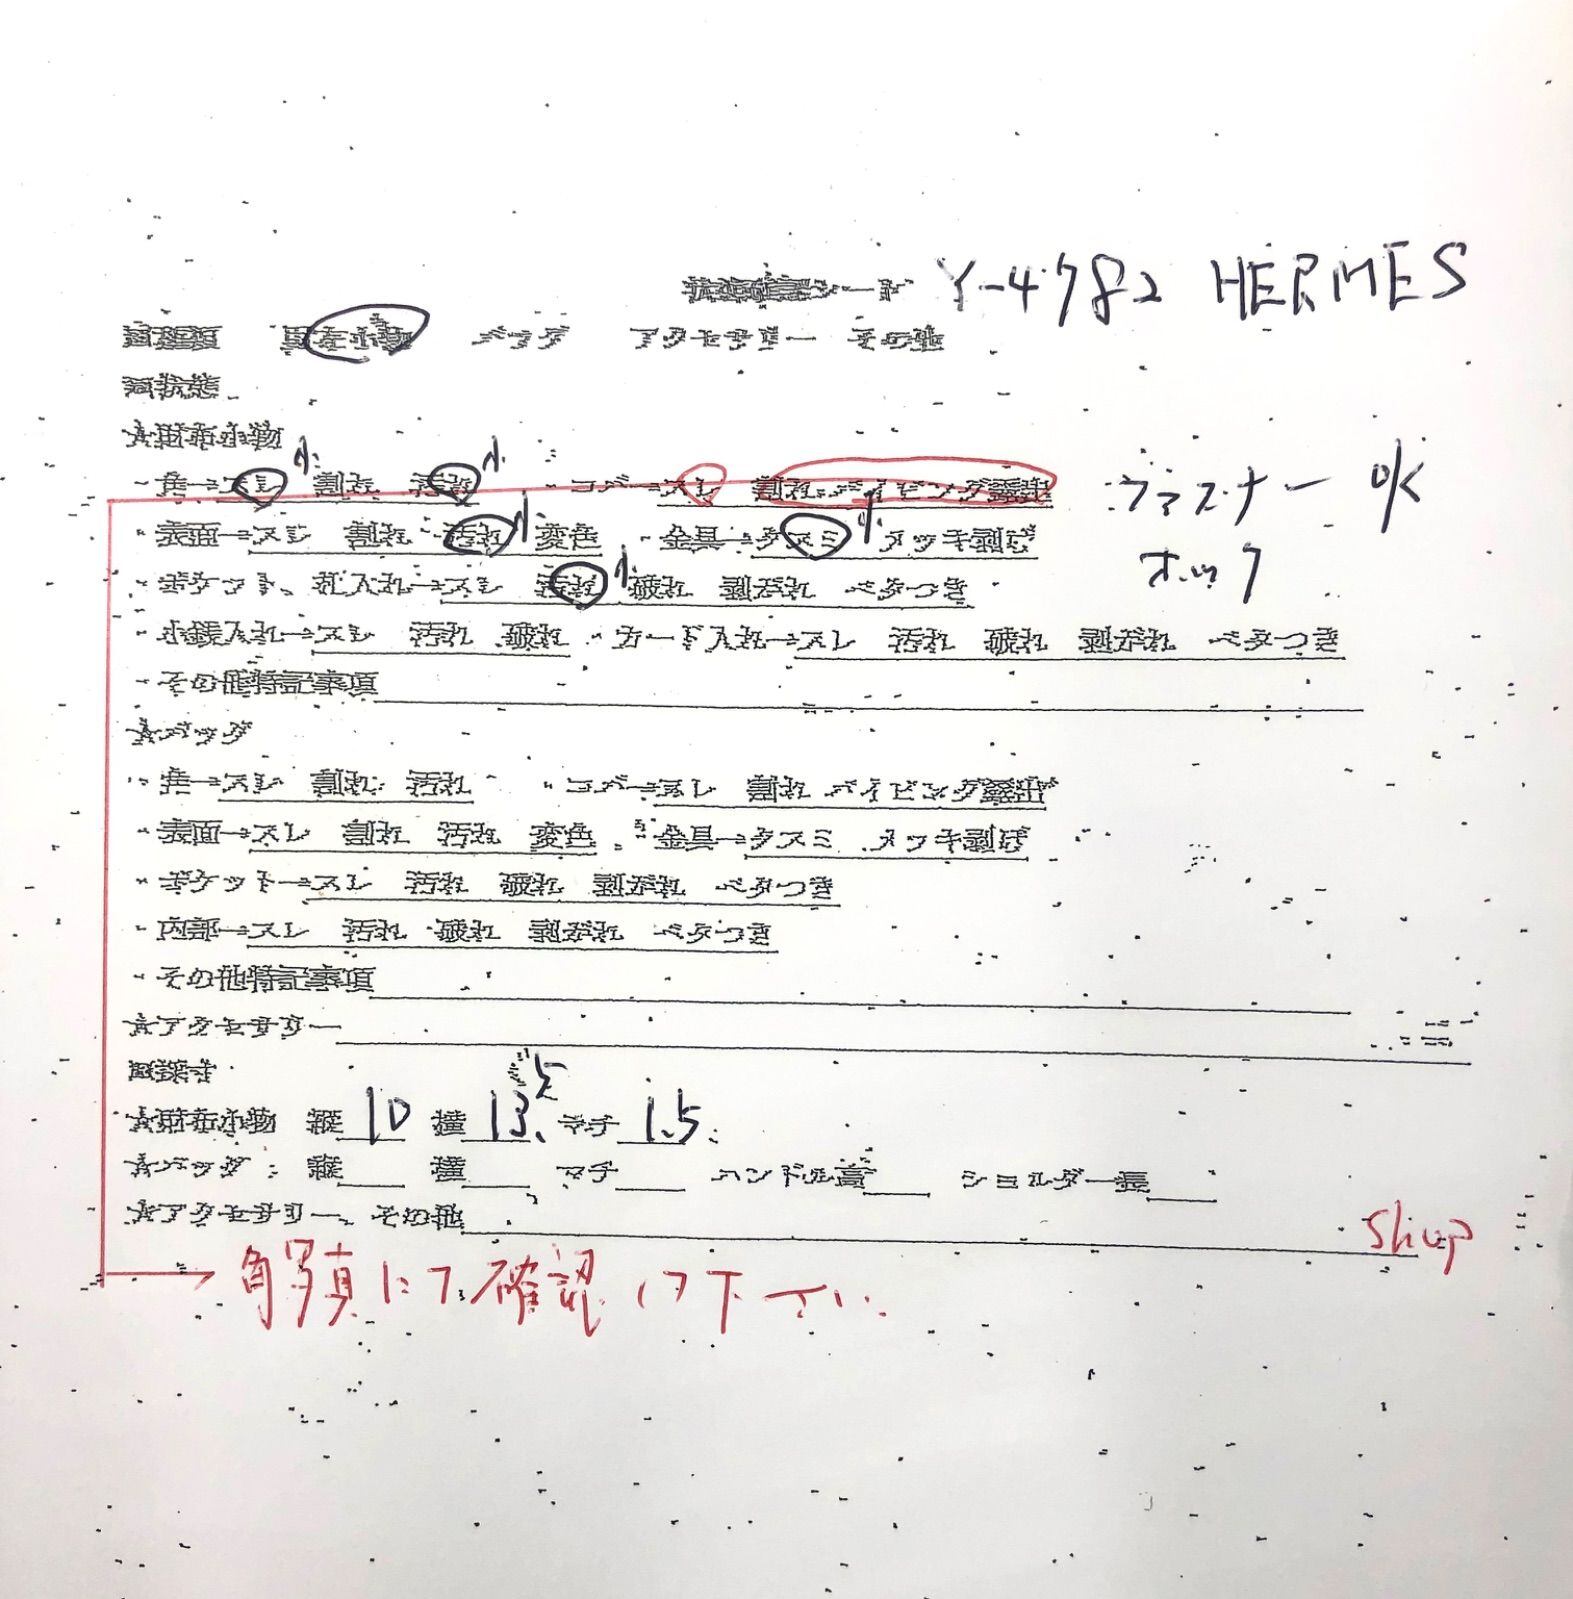 シート Y-4782 HERMES
財布小物 バッグ アクセサリー その他
状態
☆財布小物
・角→スレ 小 割れ 汚れ 小 ・コバ→スレ 割れ パイピング露出 ファスナー OK
・表面→スレ 割れ 汚れ 小 変色 ・金具→クスミ 小 メッキ剥げ ホック
・ポケット、札入れ→スレ 汚れ 小 破れ 剥がれ ベタつき
・小銭入れ→スレ 汚れ 破れ ・カード入れ→スレ 汚れ 破れ 剥がれ ベタつき
・その他特記事項
☆バッグ
・角→スレ 割れ 汚れ ・コバ→スレ 割れ パイピング露出
・表面→スレ 割れ 汚れ 変色 ・金具→クスミ メッキ剥げ
・ポケット→スレ 汚れ 破れ 剥がれ ベタつき
・内部→スレ 汚れ 破れ 剥がれ ベタつき
・その他特記事項
☆アクセサリー
採寸
☆財布小物 縦 10 横 13.5 マチ 1.5
☆バッグ 縦 横 マチ ハンドル高 ショルダー長
☆アクセサリー、その他
shop
→ 角写真にて確認して下さい